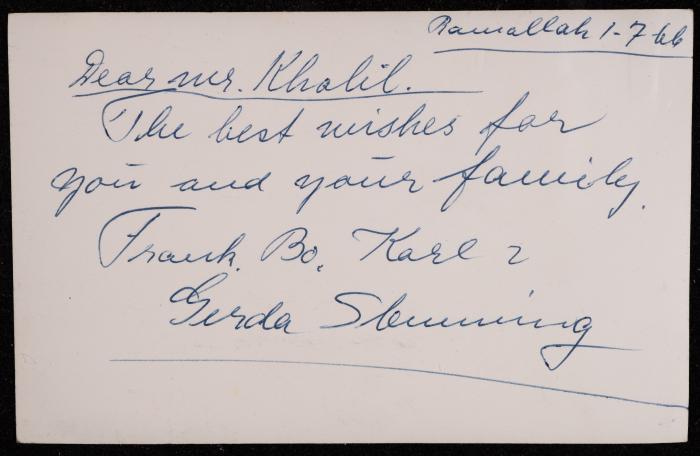 Ramallah 1-7-66
Dear mr. Khalil.
The best wishes for
you and your family.
Frank. Bo. Karl &
Gerda